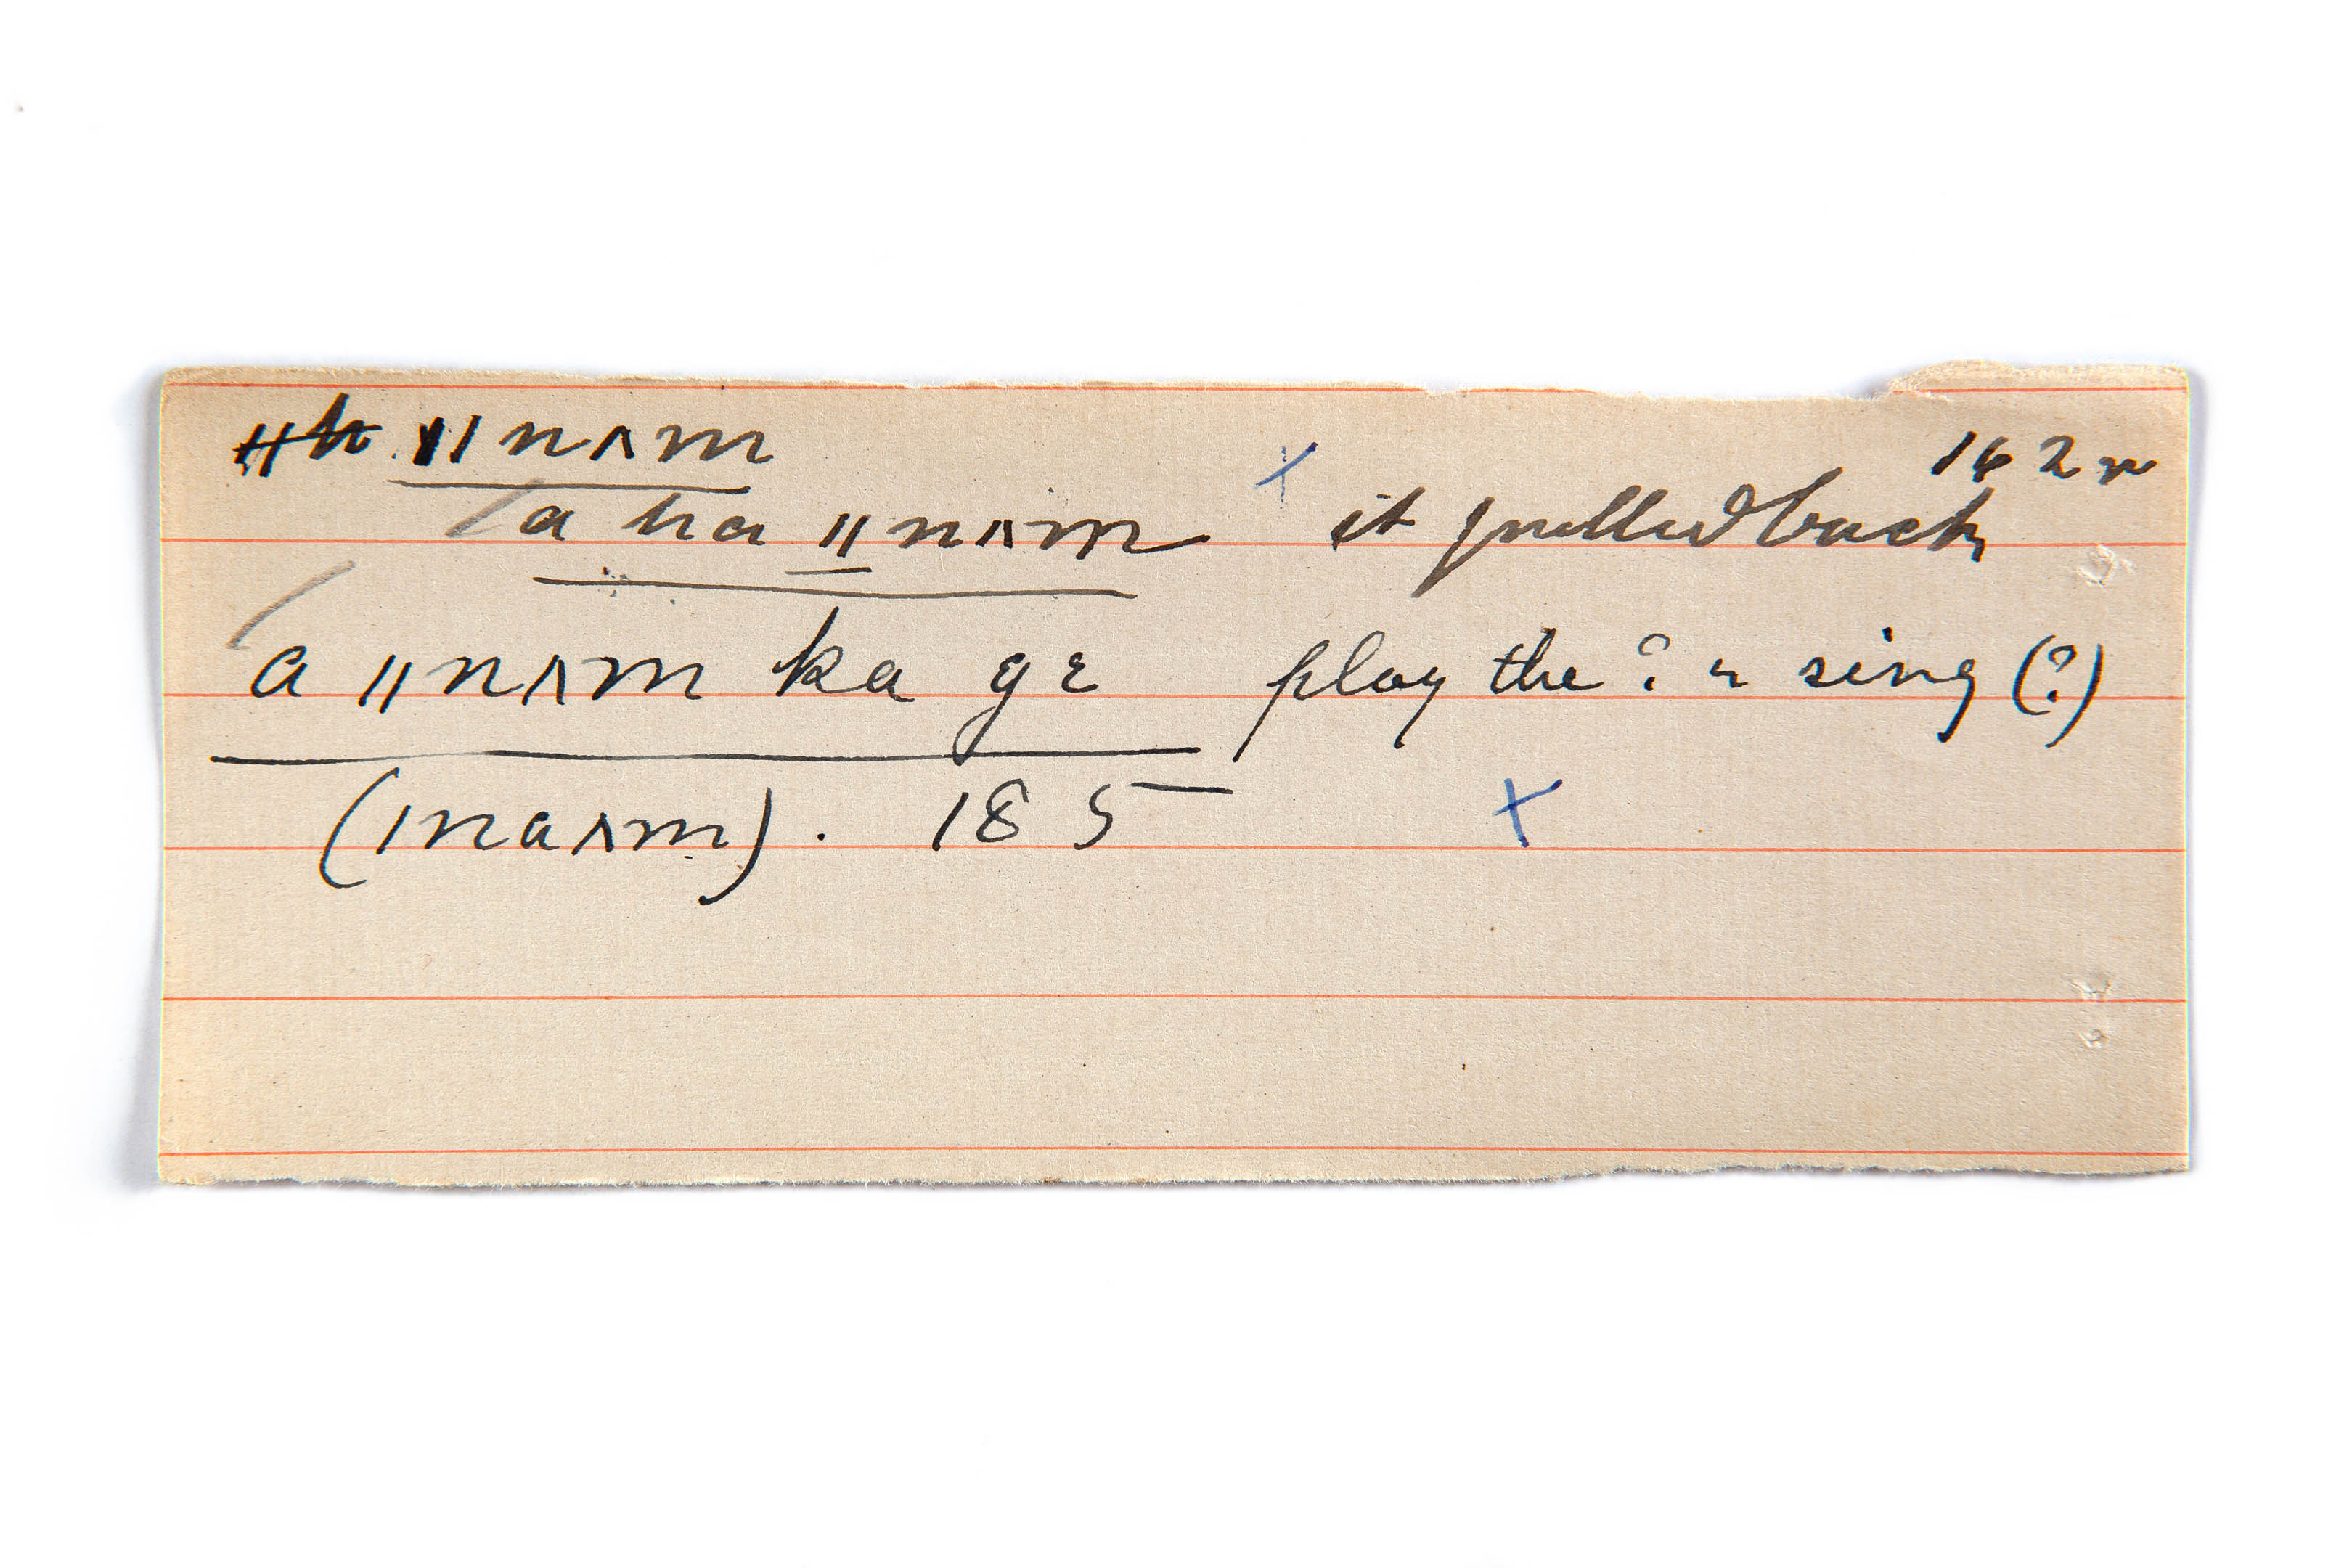 ǁnʌm
162 r
a ha ǁnʌm × it pulled back
a ǁnʌm ka gɛ play the ? r sing (?)
(ǀnaʌm). 185 ×